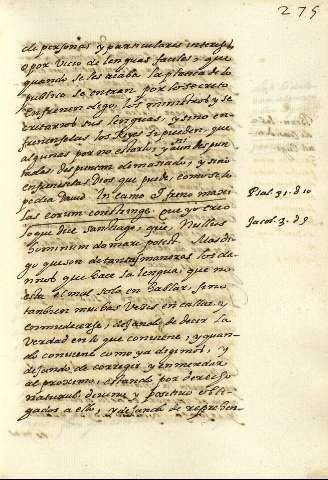 275
de personas y particulares interes͠s,
o por vicio de lenguas faciles, que
quando se les acaba la platica de lo
publico se entran por lo secreto
Enfrenen digo, los ministros y se
cretarios sus lenguas, y sino en-
frenenselas los Reyes si pueden, que
algunos por no estarlo, y aun despun-
tadas, despuntan demasiado, y sino
enfreneselas Dios que puede, como se lo
pedia Dauid In camo et freno maxi
llas eorum constringe. que yo creo
lo que dice Santiago, que Nullus
hominum domare potest. Mas di-
go que son de tantas maneras los da-
ños que hace la lengua, que no
esta el mal solo en hablar, sino
tambien muchas veces en callar, e
enmudecerse; dejando de decir la
verdad en lo que conuiene, y quan-
do conuiene como ya digimos, y
dejando de corregir y enmendar
al proximo, estando por derecho
natural, deuino y positiuo obli-
gados a ello, y dejando de reprehen-
Psal. 31. 10
Jacob. 3. 8